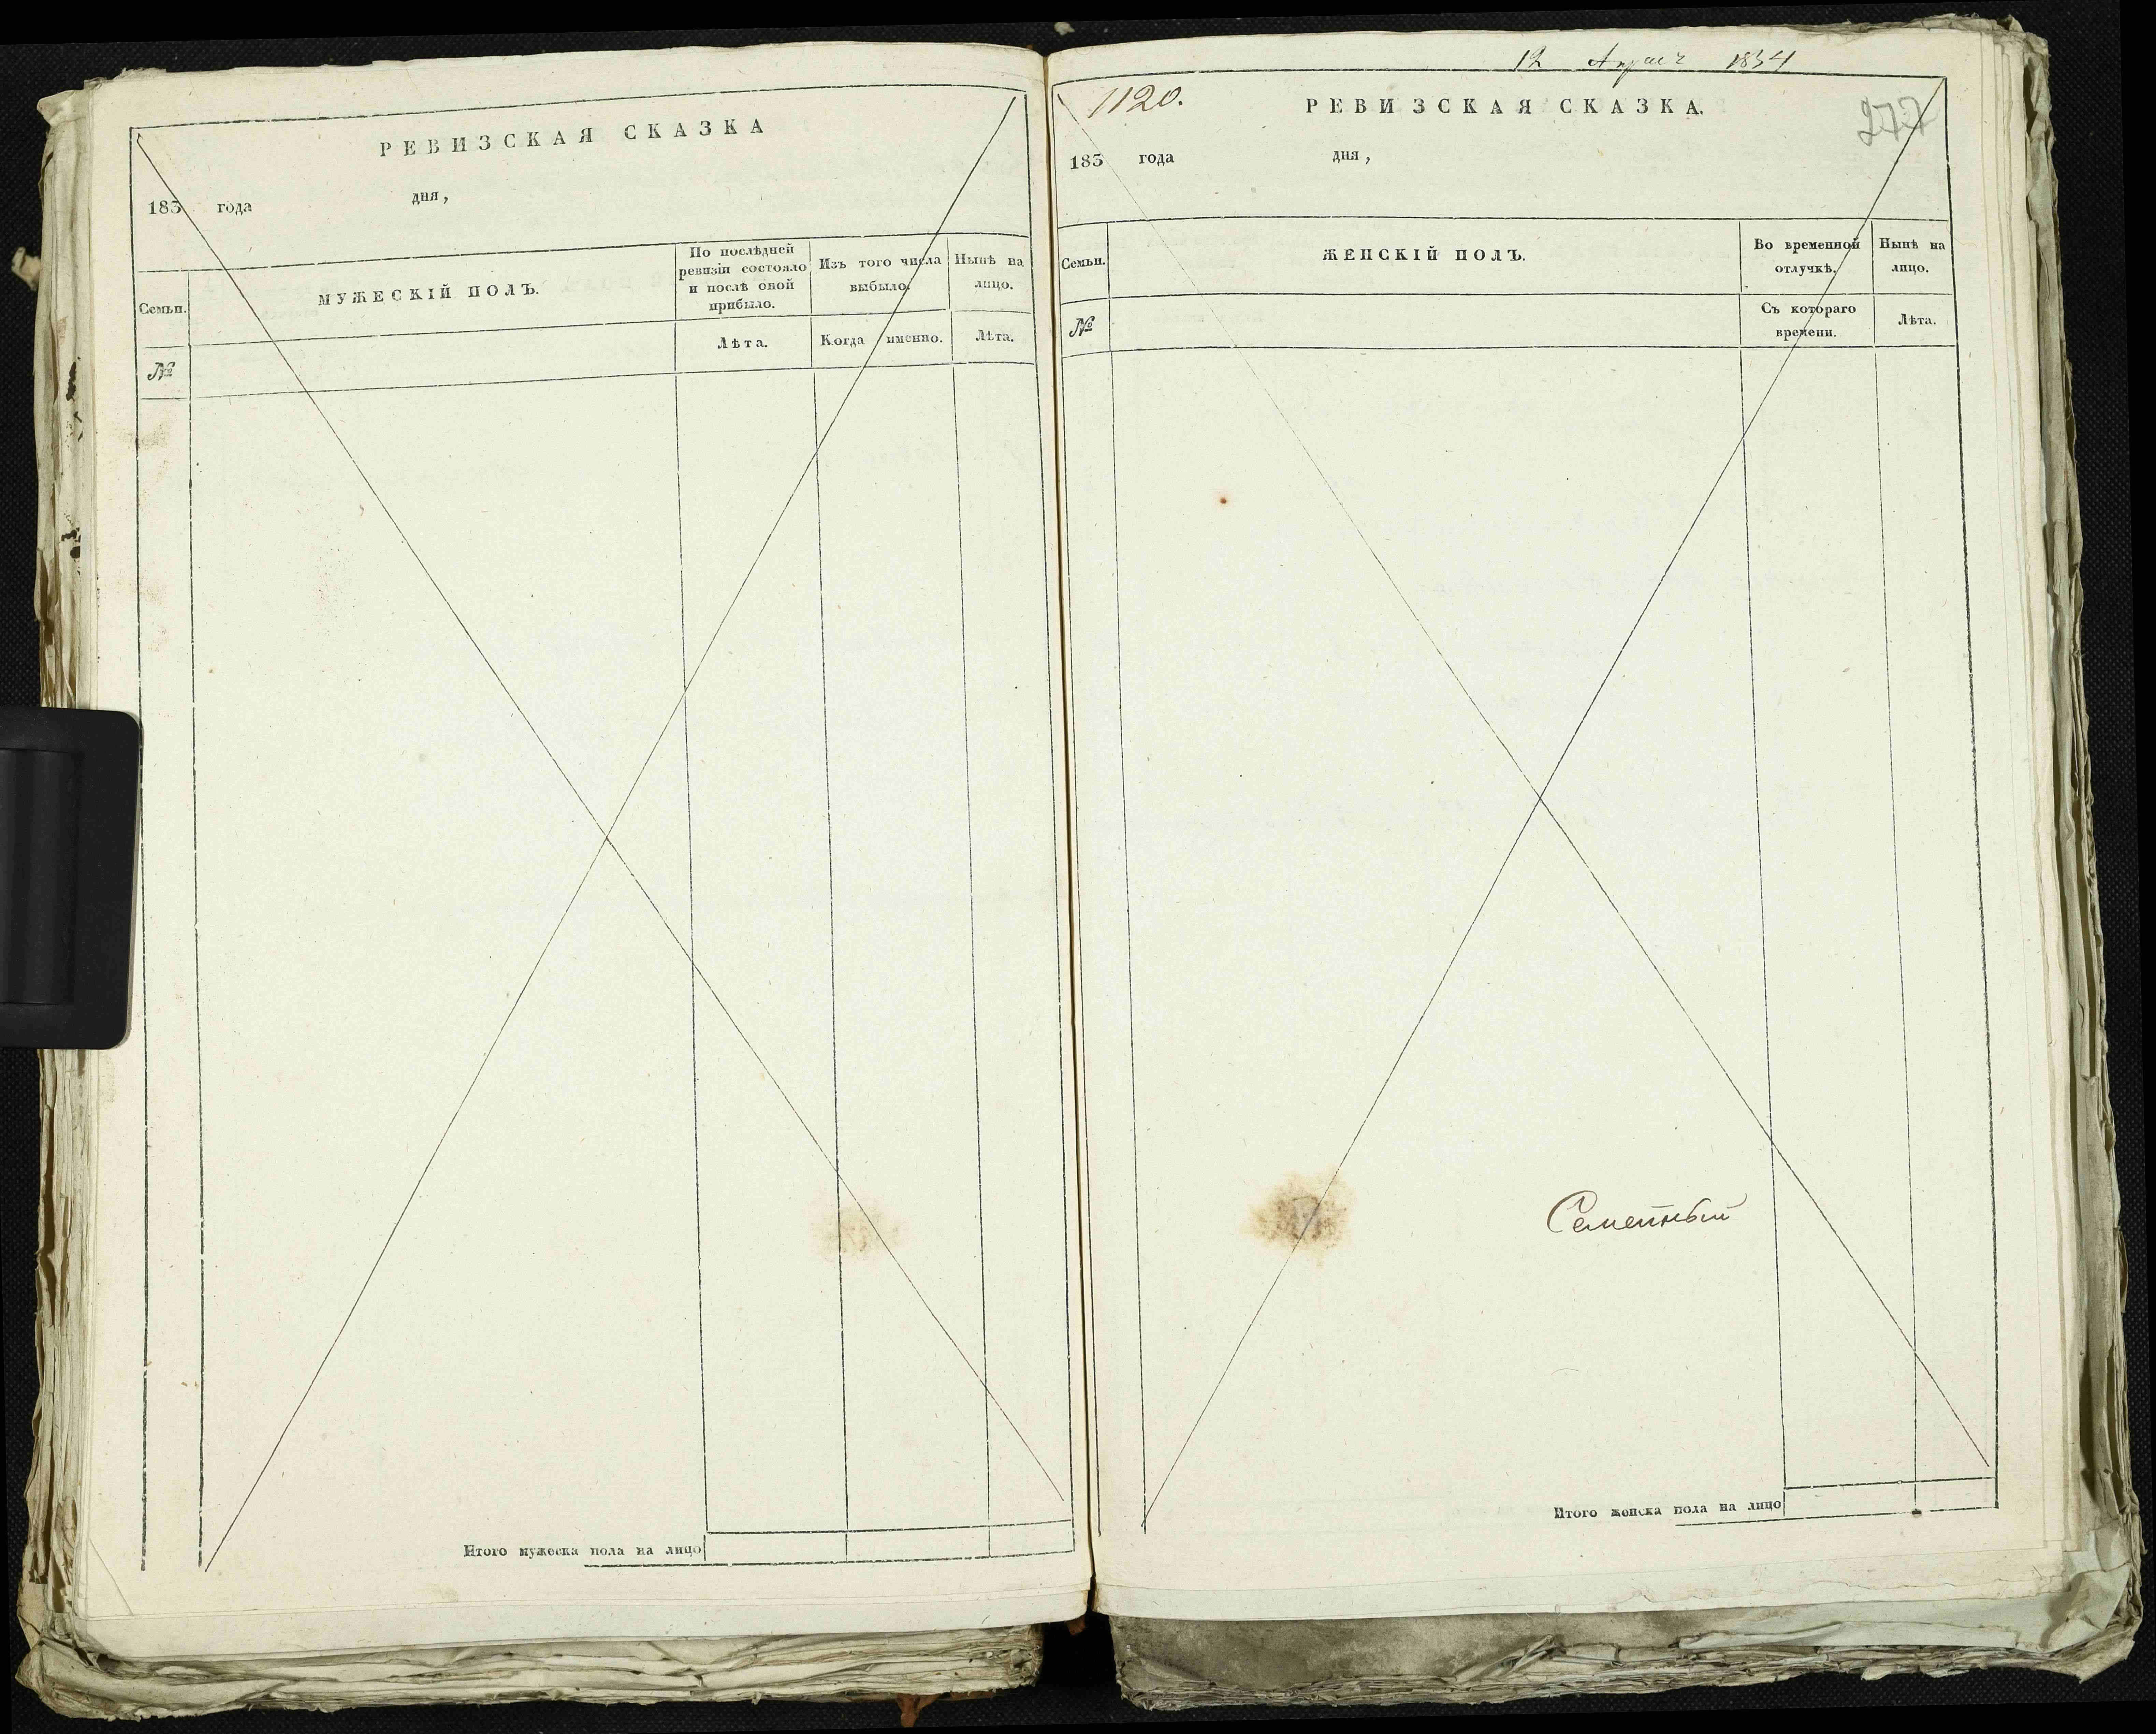 РЕВИЗСКАЯ СКАЗКА
183 года дня,
Семьи.
МУЖЕСКІЙ ПОЛЪ.
По послѣдней
ревизіи состояло
и послѣ оной
прибыло.
Изъ того числа
выбыло.
Нынѣ на
лицо.
№
Лѣта.
Когда именно.
Лѣта.
Итого мужеска пола на лицо
12 1834
1120.
РЕВИЗСКАЯ СКАЗКА.
277
183 года дня,
Семьи.
ЖЕНСКІЙ ПОЛЪ.
Во временной
отлучкѣ.
Нынѣ на
лицо.
№
Съ котораго
времени.
Лѣта.
Семейный
Итого женска пола на лицо